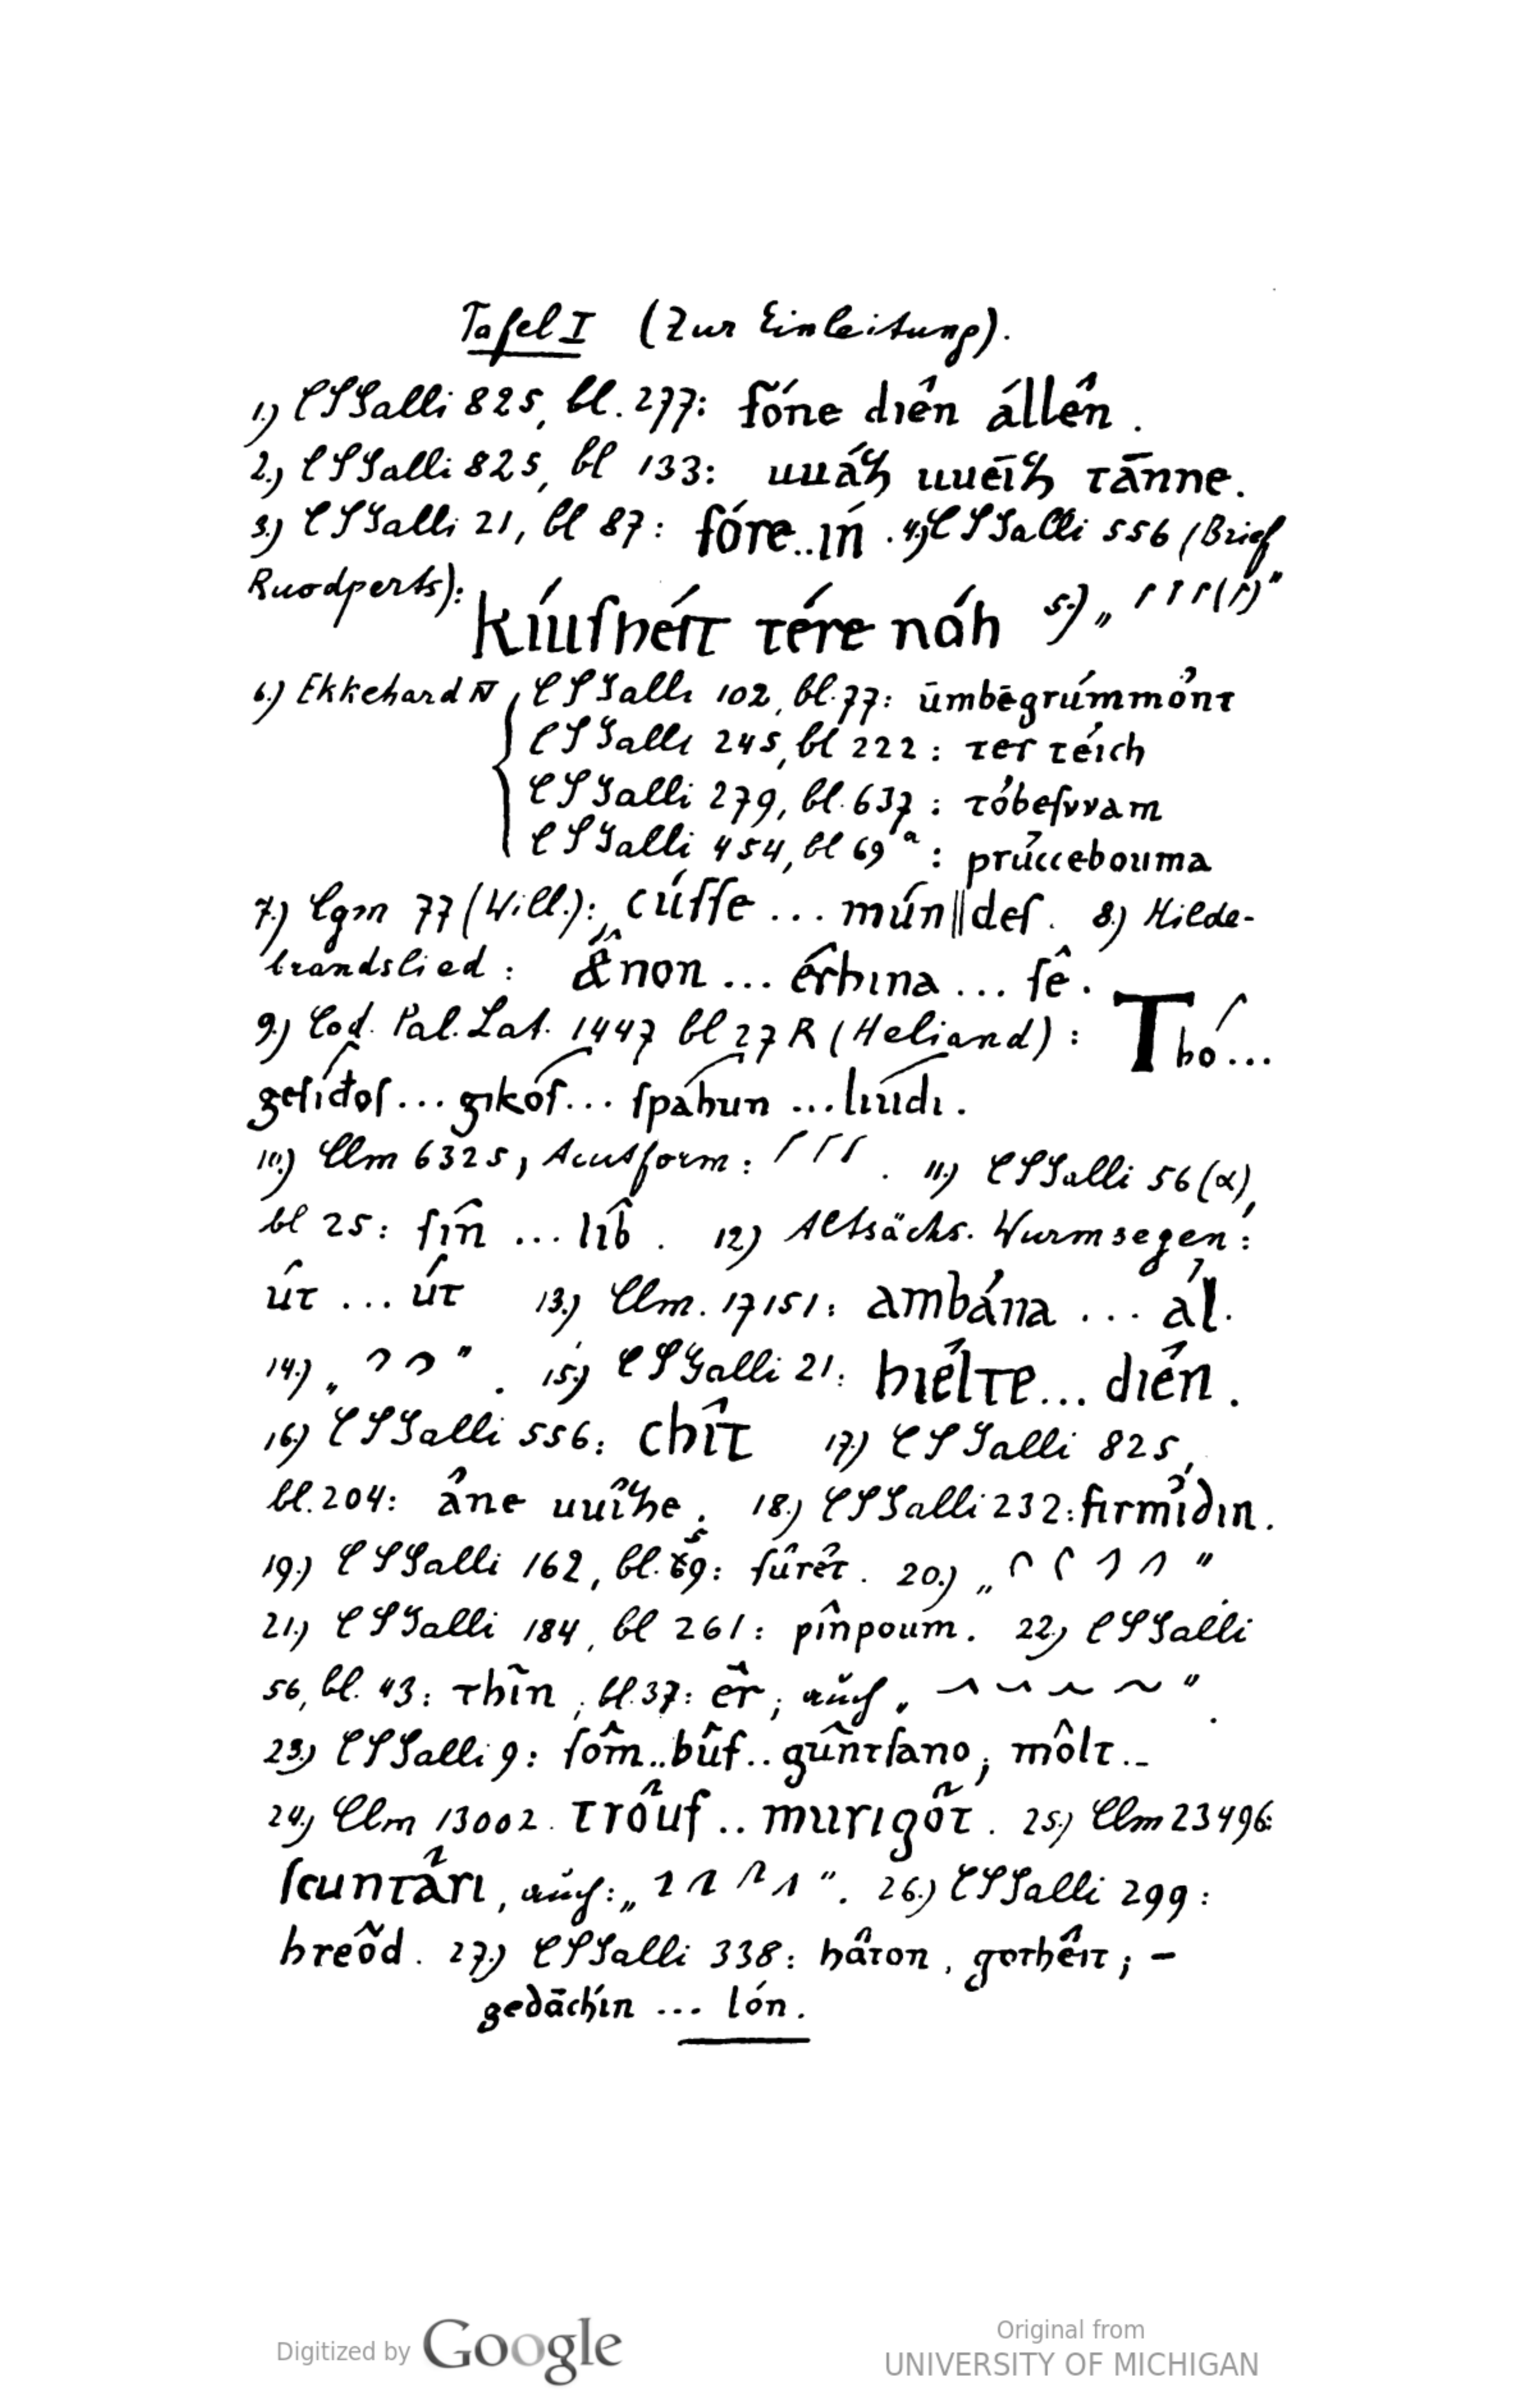 Tafel I (Zur Einleitung).
1.) CSGalli 825, bl. 277: fóne diên állên.
2.) CSGalli 825, bl 133: uuáh uuēih tānne.
3.) CSGalli 21, bl 87: fóre..ín. 4.) CSGalli 556 (Brief
Ruodperts): kíuſheít tére náh 5.) „
6.) Ekkehard IV CSGalli 102, bl. 77: ūmbēgrúmmónt
CSGalli 245, bl 222: ter téich
CSGalli 279, bl. 637: tóbeſvvam
CSGalli 454, bl 69ᵃ: prúccebouma
7.) Cgm 77 (Will.): cúſſe ... mún||deſ. 8.) Hilde-
brandslied: &̂non ... érhina ... ſê.
9.) Cod. Pal. Lat. 1447 bl 27 R (Heliand): Thó...
geſíđoſ ... gikóſ ... ſpáhun ... líudi.
10.) Clm 6325, Acutform: . 11.) CSGalli 56 (α),
bl 25: ſîn ... lîb. 12) Altsächs. Wurmsegen:
út ... út 13.) Clm. 17151: ambána ... ál.
14.) „ ". 15.) CSGalli 21: hiélte... dién.
16.) CSGalli 556: chît 17.) CSGalli 825,
bl. 204: âne uuîhe. 18.) CSGalli 232: firmíðin.
19.) CSGalli 162, bl. 59: fûrêt. 20.) „ "
21.) CSGalli 184, bl 261: pînpoum. 22.) CSGalli
56, bl. 43: thîn; bl. 37: êr; auch „ ".
23.) CSGalli 9: ſôm..bûf..gûntſano; môlt..
24.) Clm 13002. trôuf .. murigôt. 25.) Clm 23496:
ſcuntâri, auch: „ ". 26.) CSGalli 299:
hreôd. 27.) CSGalli 338: hâton, gotheît; –
gedāchín ... lón.
Digitized by Google
Original from
UNIVERSITY OF MICHIGAN